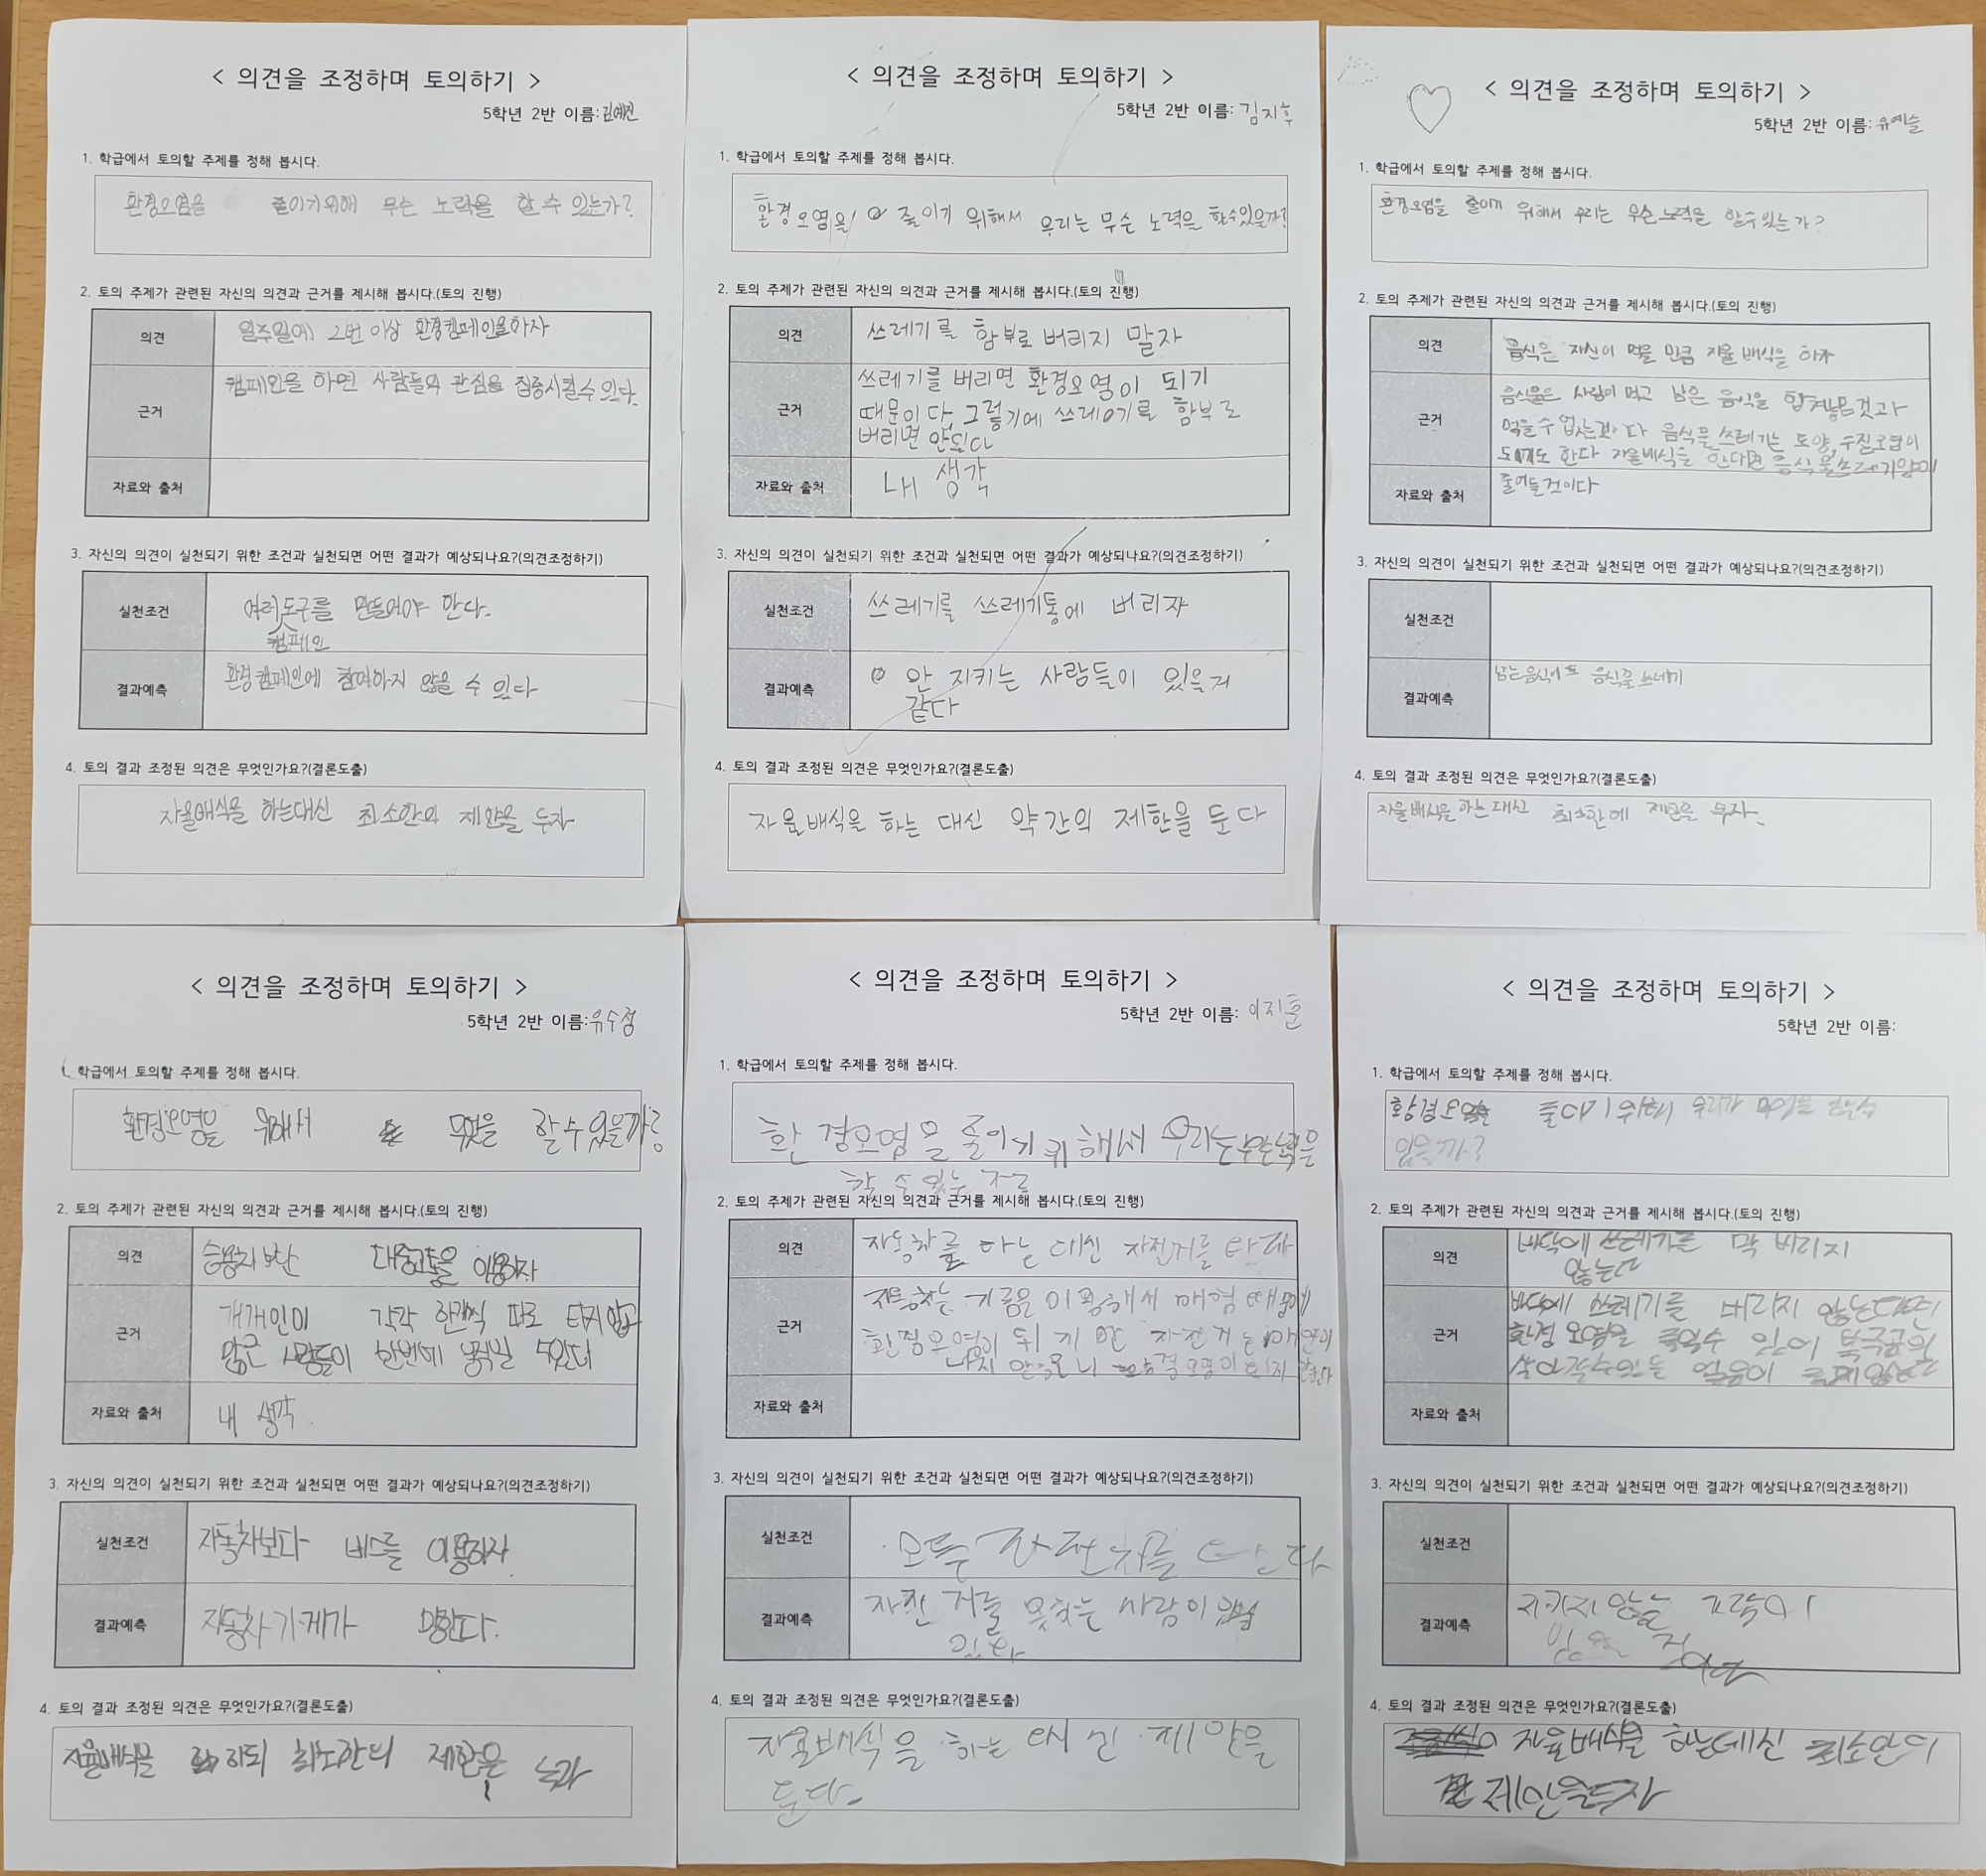 < 의견을 조정하며 토의하기 >
5학년 2반 이름: 김예진
1. 학급에서 토의할 주제를 정해 봅시다.
환경오염을 줄이기위해 무슨 노력을 할 수 있는가?
2. 토의 주제가 관련된 자신의 의견과 근거를 제시해 봅시다.(토의 진행)
의견
일주일에 2번 이상 환경캠페인을하자
근거
캠페인을 하면 사람들의 관심을 집중시킬수 있다.
자료와 출처
3. 자신의 의견이 실천되기 위한 조건과 실천되면 어떤 결과가 예상되나요?(의견조정하기)
실천조건
여러 도구를 만들어야 한다.
캠페인
결과예측
환경캠페인에 참여하지 않을 수 있다
4. 토의 결과 조정된 의견은 무엇인가요?(결론도출)
자율배식을 하는대신 최소한의 제한을 두자
< 의견을 조정하며 토의하기 >
5학년 2반 이름: 김지후
1. 학급에서 토의할 주제를 정해 봅시다.
환경오염을 줄이기 위해서 우리는 무슨 노력을 할수있을까?
2. 토의 주제가 관련된 자신의 의견과 근거를 제시해 봅시다.(토의 진행)
의견
쓰레기를 함부로 버리지 말자
근거
쓰레기를 버리면 환경오염이 되기
때문이다, 그렇기에 쓰레기를 함부로
버리면 안된다
자료와 출처
내 생각
3. 자신의 의견이 실천되기 위한 조건과 실천되면 어떤 결과가 예상되나요?(의견조정하기)
실천조건
쓰레기를 쓰레기통에 버리자
결과예측
안 지키는 사람들이 있을거
같다
4. 토의 결과 조정된 의견은 무엇인가요?(결론도출)
자율배식을 하는 대신 약간의 제한을 둔다
< 의견을 조정하며 토의하기 >
5학년 2반 이름: 유예슬
1. 학급에서 토의할 주제를 정해 봅시다.
환경오염을 줄이기 위해서 우리는 무슨노력을 할수있는가?
2. 토의 주제가 관련된 자신의 의견과 근거를 제시해 봅시다.(토의 진행)
의견
음식은 자신이 먹을 만큼 자율배식을 하자
근거
음식물은 사람이 먹고 남은 음식을 것과
먹을수 없는것이다 음식물쓰레기는 토양,수질오염이
되기도 한다 자율배식을 한다면 음식물쓰레기양이
줄어들것이다
자료와 출처
3. 자신의 의견이 실천되기 위한 조건과 실천되면 어떤 결과가 예상되나요?(의견조정하기)
실천조건
결과예측
남는음식이 음식물 쓰레기
4. 토의 결과 조정된 의견은 무엇인가요?(결론도출)
자율배식을 하는대신 최소한에 제한을 두자.
< 의견을 조정하며 토의하기 >
5학년 2반 이름: 유수정
1. 학급에서 토의할 주제를 정해 봅시다.
환경오염을 위해서 무엇을 할수있을까?
2. 토의 주제가 관련된 자신의 의견과 근거를 제시해 봅시다.(토의 진행)
의견
승용차보단 대중교통을 이용하자
근거
개개인이 각각 한대씩 따로 타지않고
많은 사람들이 한번에 움직일 수있다
자료와 출처
내 생각.
3. 자신의 의견이 실천되기 위한 조건과 실천되면 어떤 결과가 예상되나요?(의견조정하기)
실천조건
자동차보다 버스를 이용하자.
결과예측
자동차가게가 망한다.
4. 토의 결과 조정된 의견은 무엇인가요?(결론도출)
자율배식을 하되 최소한의 제한을
< 의견을 조정하며 토의하기 >
5학년 2반 이름: 이지훈
1. 학급에서 토의할 주제를 정해 봅시다.
환경오염을 줄이기위해서 우리는무슨노력을
할 수 있는
2. 토의 주제가 관련된 자신의 의견과 근거를 제시해 봅시다.(토의 진행)
의견
자동차를 타는 대신 자전거를 타자
근거
자동차는 기름을 이용해서 매연 때문에
환경오염이 되지만 자전거는 매연이
나지 안으니 환경오염이 되지 안는다
자료와 출처
3. 자신의 의견이 실천되기 위한 조건과 실천되면 어떤 결과가 예상되나요?(의견조정하기)
실천조건
결과예측
자전거를 사람이
있다
4. 토의 결과 조정된 의견은 무엇인가요?(결론도출)
자율배식을 하는 대신 제안을
둔다.
< 의견을 조정하며 토의하기 >
5학년 2반 이름:
1. 학급에서 토의할 주제를 정해 봅시다.
환경오염을 줄이기위해 우리가 무엇을 할수
있을까?
2. 토의 주제가 관련된 자신의 의견과 근거를 제시해 봅시다.(토의 진행)
의견
바닥에 쓰레기를 막 버리지
않는다
근거
바닥에 쓰레기를 버리지 않는다면
환경 오염을 줄일수 있어 북극곰이
살아갈수있는 얼음이
자료와 출처
3. 자신의 의견이 실천되기 위한 조건과 실천되면 어떤 결과가 예상되나요?(의견조정하기)
실천조건
결과예측
지키지않는
있을 것이다
4. 토의 결과 조정된 의견은 무엇인가요?(결론도출)
자율배식을 하는데신 최소한의
제안을두자